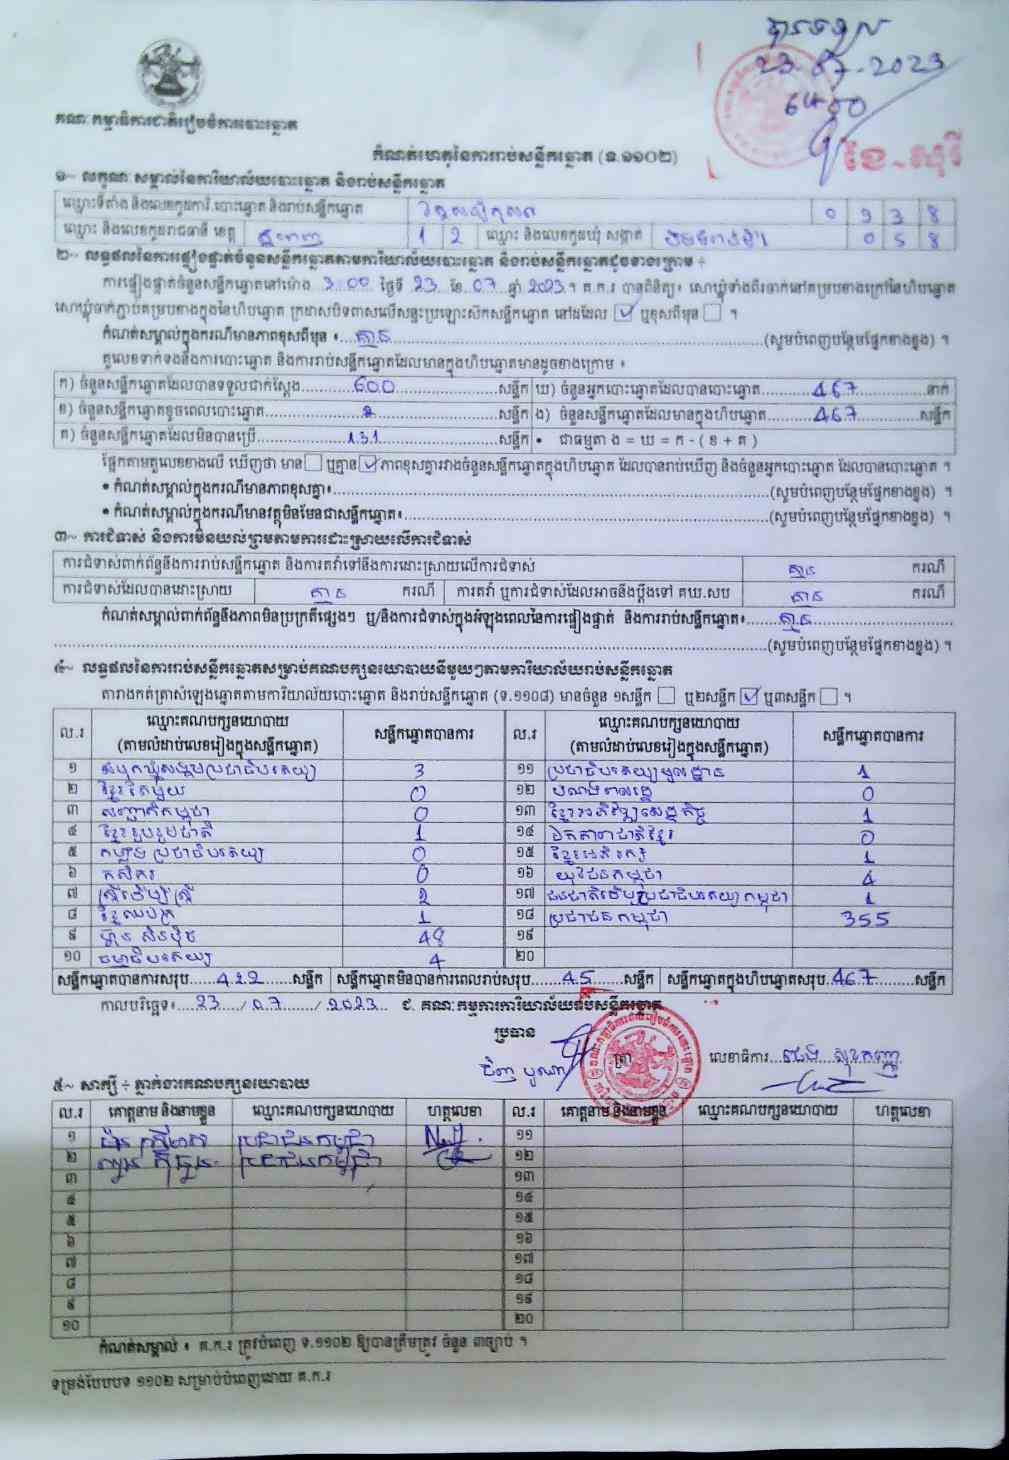 បានទទួល
23-07-2023
គណៈកម្មាធិការជាតិរៀបចំការបោះឆ្នោត
កំណត់ហេតុនៃការរាប់សន្លឹកឆ្នោត (ទ.១១០២)
១~ លក្ខណៈសម្គាល់នៃការិយាល័យបោះឆ្នោត និងរាប់សន្លឹកឆ្នោត
ឈ្មោះទីតាំង និងលេខកូដការិ.បោះឆ្នោត និងរាប់សន្លឹកឆ្នោត 0 9 3 8
ឈ្មោះ និងលេខកូដរាជធានី ខេត្ត ភ្នំពេញ 1 2 ឈ្មោះ និងលេខកូដឃុំ សង្កាត់ 0 5 8
២~ លទ្ធផលនៃការផ្ទៀងផ្ទាត់ចំនួនសន្លឹកឆ្នោតតាមការិយាល័យបោះឆ្នោត និងរាប់សន្លឹកឆ្នោតដូចខាងក្រោម ៖
ការផ្ទៀងផ្ទាត់ចំនួនសន្លឹកឆ្នោតនៅម៉ោង 3:00 ថ្ងៃទី 23 ខែ 07 ឆ្នាំ 2023 ។ គ.ក.រ បានពិនិត្យ៖ សោឃ្លុំទាំងពីរចាក់នៅគម្របខាងក្រៅនៃហិបឆ្នោត
សោឃ្លុំចាក់ភ្ជាប់គម្របខាងក្នុងនៃហិបឆ្នោត ក្រដាសបិទពាសលើសន្ទះប្រឡោះស៊កសន្លឹកឆ្នោត នៅដដែល ☑ ឬខុសពីមុន ☐ ។
កំណត់សម្គាល់ក្នុងករណីមានភាពខុសពីមុន ៖ គ្មាន (សូមបំពេញបន្ថែមផ្នែកខាងខ្នង) ។
តួលេខទាក់ទងនឹងការបោះឆ្នោត និងការរាប់សន្លឹកឆ្នោតដែលមានក្នុងហិបឆ្នោតមានដូចខាងក្រោម ៖
ក) ចំនួនសន្លឹកឆ្នោតដែលបានទទួលជាក់ស្តែង 600 សន្លឹក ឃ) ចំនួនអ្នកបោះឆ្នោតដែលបានបោះឆ្នោត 467 នាក់
ខ) ចំនួនសន្លឹកឆ្នោតខូចពេលបោះឆ្នោត 2 សន្លឹក ង) ចំនួនសន្លឹកឆ្នោតដែលមានក្នុងហិបឆ្នោត 467 សន្លឹក
គ) ចំនួនសន្លឹកឆ្នោតដែលមិនបានប្រើ 131 សន្លឹក • ជាធម្មតា ង = ឃ = ក - ( ខ + គ )
ផ្អែកតាមតួលេខខាងលើ ឃើញថា មាន ☐ ឬគ្មាន ☑ ភាពខុសគ្នារវាងចំនួនសន្លឹកឆ្នោតក្នុងហិបឆ្នោត ដែលបានរាប់ឃើញ និងចំនួនអ្នកបោះឆ្នោត ដែលបានបោះឆ្នោត ។
• កំណត់សម្គាល់ក្នុងករណីមានភាពខុសគ្នា៖ (សូមបំពេញបន្ថែមផ្នែកខាងខ្នង) ។
• កំណត់សម្គាល់ក្នុងករណីមានវត្ថុមិនមែនជាសន្លឹកឆ្នោត៖ (សូមបំពេញបន្ថែមផ្នែកខាងខ្នង) ។
៣~ ការជំទាស់ និងការមិនយល់ព្រមតាមការដោះស្រាយលើការជំទាស់
ការជំទាស់ពាក់ព័ន្ធនឹងការរាប់សន្លឹកឆ្នោត និងការតវ៉ាទៅនឹងការដោះស្រាយលើការជំទាស់ គ្មាន ករណី
ការជំទាស់ដែលបានដោះស្រាយ គ្មាន ករណី ការតវ៉ា ឬការជំទាស់ដែលអាចនឹងប្តឹងទៅ គឃ.សប គ្មាន ករណី
កំណត់សម្គាល់ពាក់ព័ន្ធនឹងភាពមិនប្រក្រតីផ្សេងៗ ឬ/និងការជំទាស់ក្នុងអំឡុងពេលនៃការផ្ទៀងផ្ទាត់ និងការរាប់សន្លឹកឆ្នោត៖ គ្មាន
(សូមបំពេញបន្ថែមផ្នែកខាងខ្នង) ។
៤~ លទ្ធផលនៃការរាប់សន្លឹកឆ្នោតសម្រាប់គណបក្សនយោបាយនីមួយៗតាមការិយាល័យរាប់សន្លឹកឆ្នោត
តារាងកត់ត្រាសំឡេងឆ្នោតតាមការិយាល័យបោះឆ្នោត និងរាប់សន្លឹកឆ្នោត (ទ.១១០៨) មានចំនួន ១សន្លឹក ☐ ឬ២សន្លឹក ☑ ឬ៣សន្លឹក ☐ ។
ល.រ ឈ្មោះគណបក្សនយោបាយ (តាមលំដាប់លេខរៀងក្នុងសន្លឹកឆ្នោត) សន្លឹកឆ្នោតបានការ ល.រ ឈ្មោះគណបក្សនយោបាយ (តាមលំដាប់លេខរៀងក្នុងសន្លឹកឆ្នោត) សន្លឹកឆ្នោតបានការ
១ សំបុកឃ្មុំសង្គមប្រជាធិបតេយ្យ 3 ១១ ប្រជាធិបតេយ្យមូលដ្ឋាន 1
២ ខ្មែរតែមួយ 0 ១២ 0
៣ សញ្ជាតិកម្ពុជា 0 ១៣ ខ្មែរអភិវឌ្ឍន៍សេដ្ឋកិច្ច 1
៤ ខ្មែររួបរួមជាតិ 1 ១៤ ឯកភាពជាតិខ្មែរ 0
៥ កម្លាំងប្រជាធិបតេយ្យ 0 ១៥ ខ្មែរអភិរក្ស 1
៦ កសិករ 0 ១៦ យុវជនកម្ពុជា 4
៧ ស្ត្រីដើម្បីស្ត្រី 2 ១៧ ជនជាតិដើមប្រជាធិបតេយ្យកម្ពុជា 1
៨ ខ្មែរឈប់ក្រ 1 ១៨ ប្រជាជនកម្ពុជា 355
៩ ហ៊្វុនស៊ិនប៉ិច 48 ១៩
១០ ធម្មាធិបតេយ្យ 4 ២០
សន្លឹកឆ្នោតបានការសរុប 422 សន្លឹក សន្លឹកឆ្នោតមិនបានការពេលរាប់សរុប 45 សន្លឹក សន្លឹកឆ្នោតក្នុងហិបឆ្នោតសរុប 467 សន្លឹក
កាលបរិច្ឆេទ៖ 23 / 07 / 2023 ជ. គណៈកម្មការការិយាល័យរាប់សន្លឹកឆ្នោត
ប្រធាន
ត្រា លេខាធិការ
៥~ សាក្សី ÷ ភ្នាក់ងារគណបក្សនយោបាយ
ល.រ គោត្តនាម និងនាមខ្លួន ឈ្មោះគណបក្សនយោបាយ ហត្ថលេខា ល.រ គោត្តនាម និងនាមខ្លួន ឈ្មោះគណបក្សនយោបាយ ហត្ថលេខា
១ ប្រជាជនកម្ពុជា ១១
២ ប្រជាជនកម្ពុជា ១២
៣ ១៣
៤ ១៤
៥ ១៥
៦ ១៦
៧ ១៧
៨ ១៨
៩ ១៩
១០ ២០
កំណត់សម្គាល់ ៖ គ.ក.រ ត្រូវបំពេញ ទ.១១០២ ឱ្យបានត្រឹមត្រូវ ចំនួន ៣ច្បាប់ ។
ទម្រង់បែបបទ ១១០២ សម្រាប់បំពេញដោយ គ.ក.រ